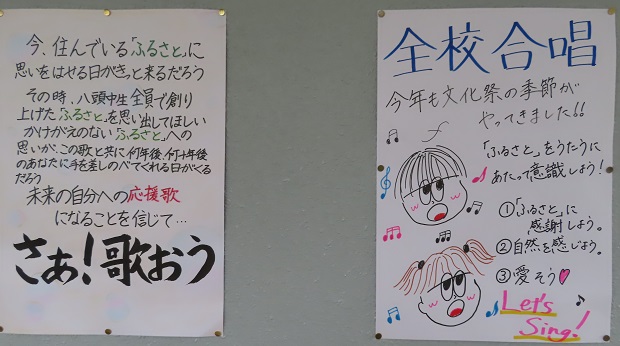 今、住んでいる「ふるさと」に
思いをはせる日がきっと来るだろう
その時、八頭中生全員で創り
上げた「ふるさと」を思い出してほしい
かけがえのない「ふるさと」への
思いが、この歌と共に何年後、何十年後
のあなたに手を差しのべてくれる日がくる
だろう
未来の自分への応援歌
になることを信じて…
さぁ!歌おう
全校合唱
今年も文化祭の季節が
やってきました!!
「ふるさと」をうたうに
あたって意識しよう!
①「ふるさと」に
感謝しよう。
②自然を感じよう。
③愛そう♥
Let's
Sing!